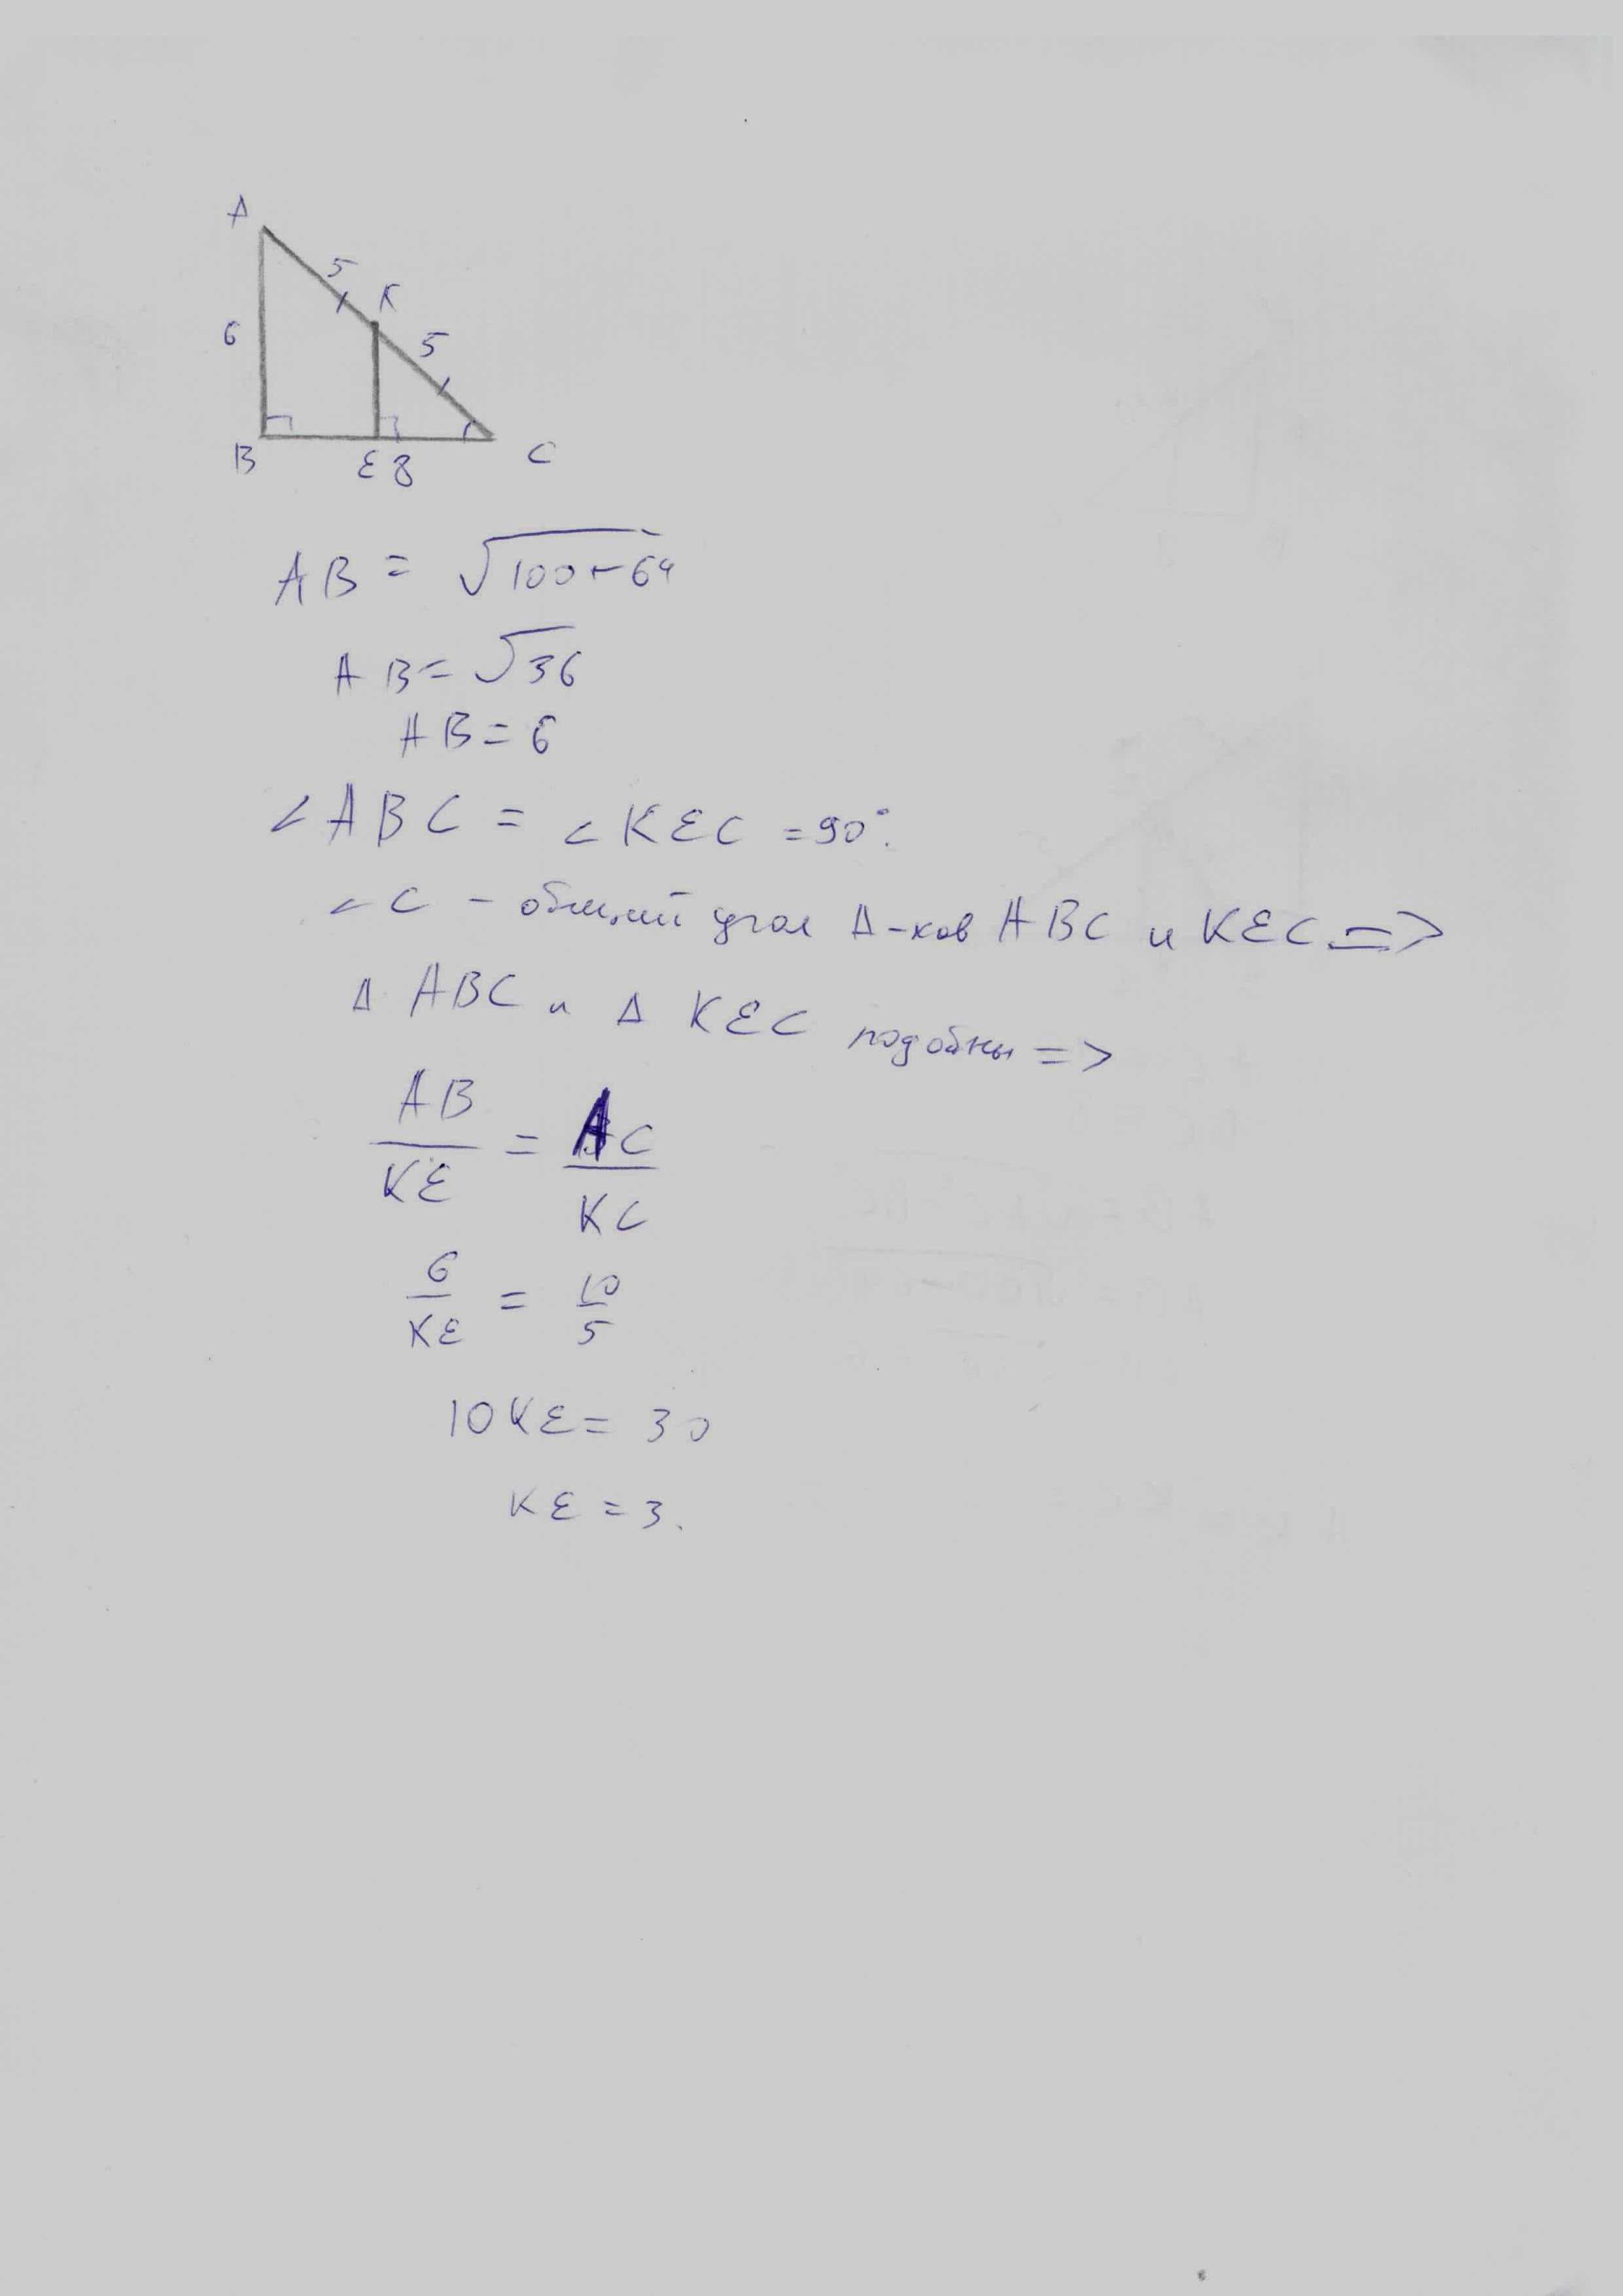 A
5
K
6
5
B
E 8
C
AB = √100-64
AB = √36
AB = 6
∠ABC = ∠KEC = 90°.
∠C - общий угол Δ-ков ABC и KEC =>
Δ ABC и Δ KEC подобны =>
AB/KE = AC/KC
6/KE = 10/5
10KE = 30
KE = 3.